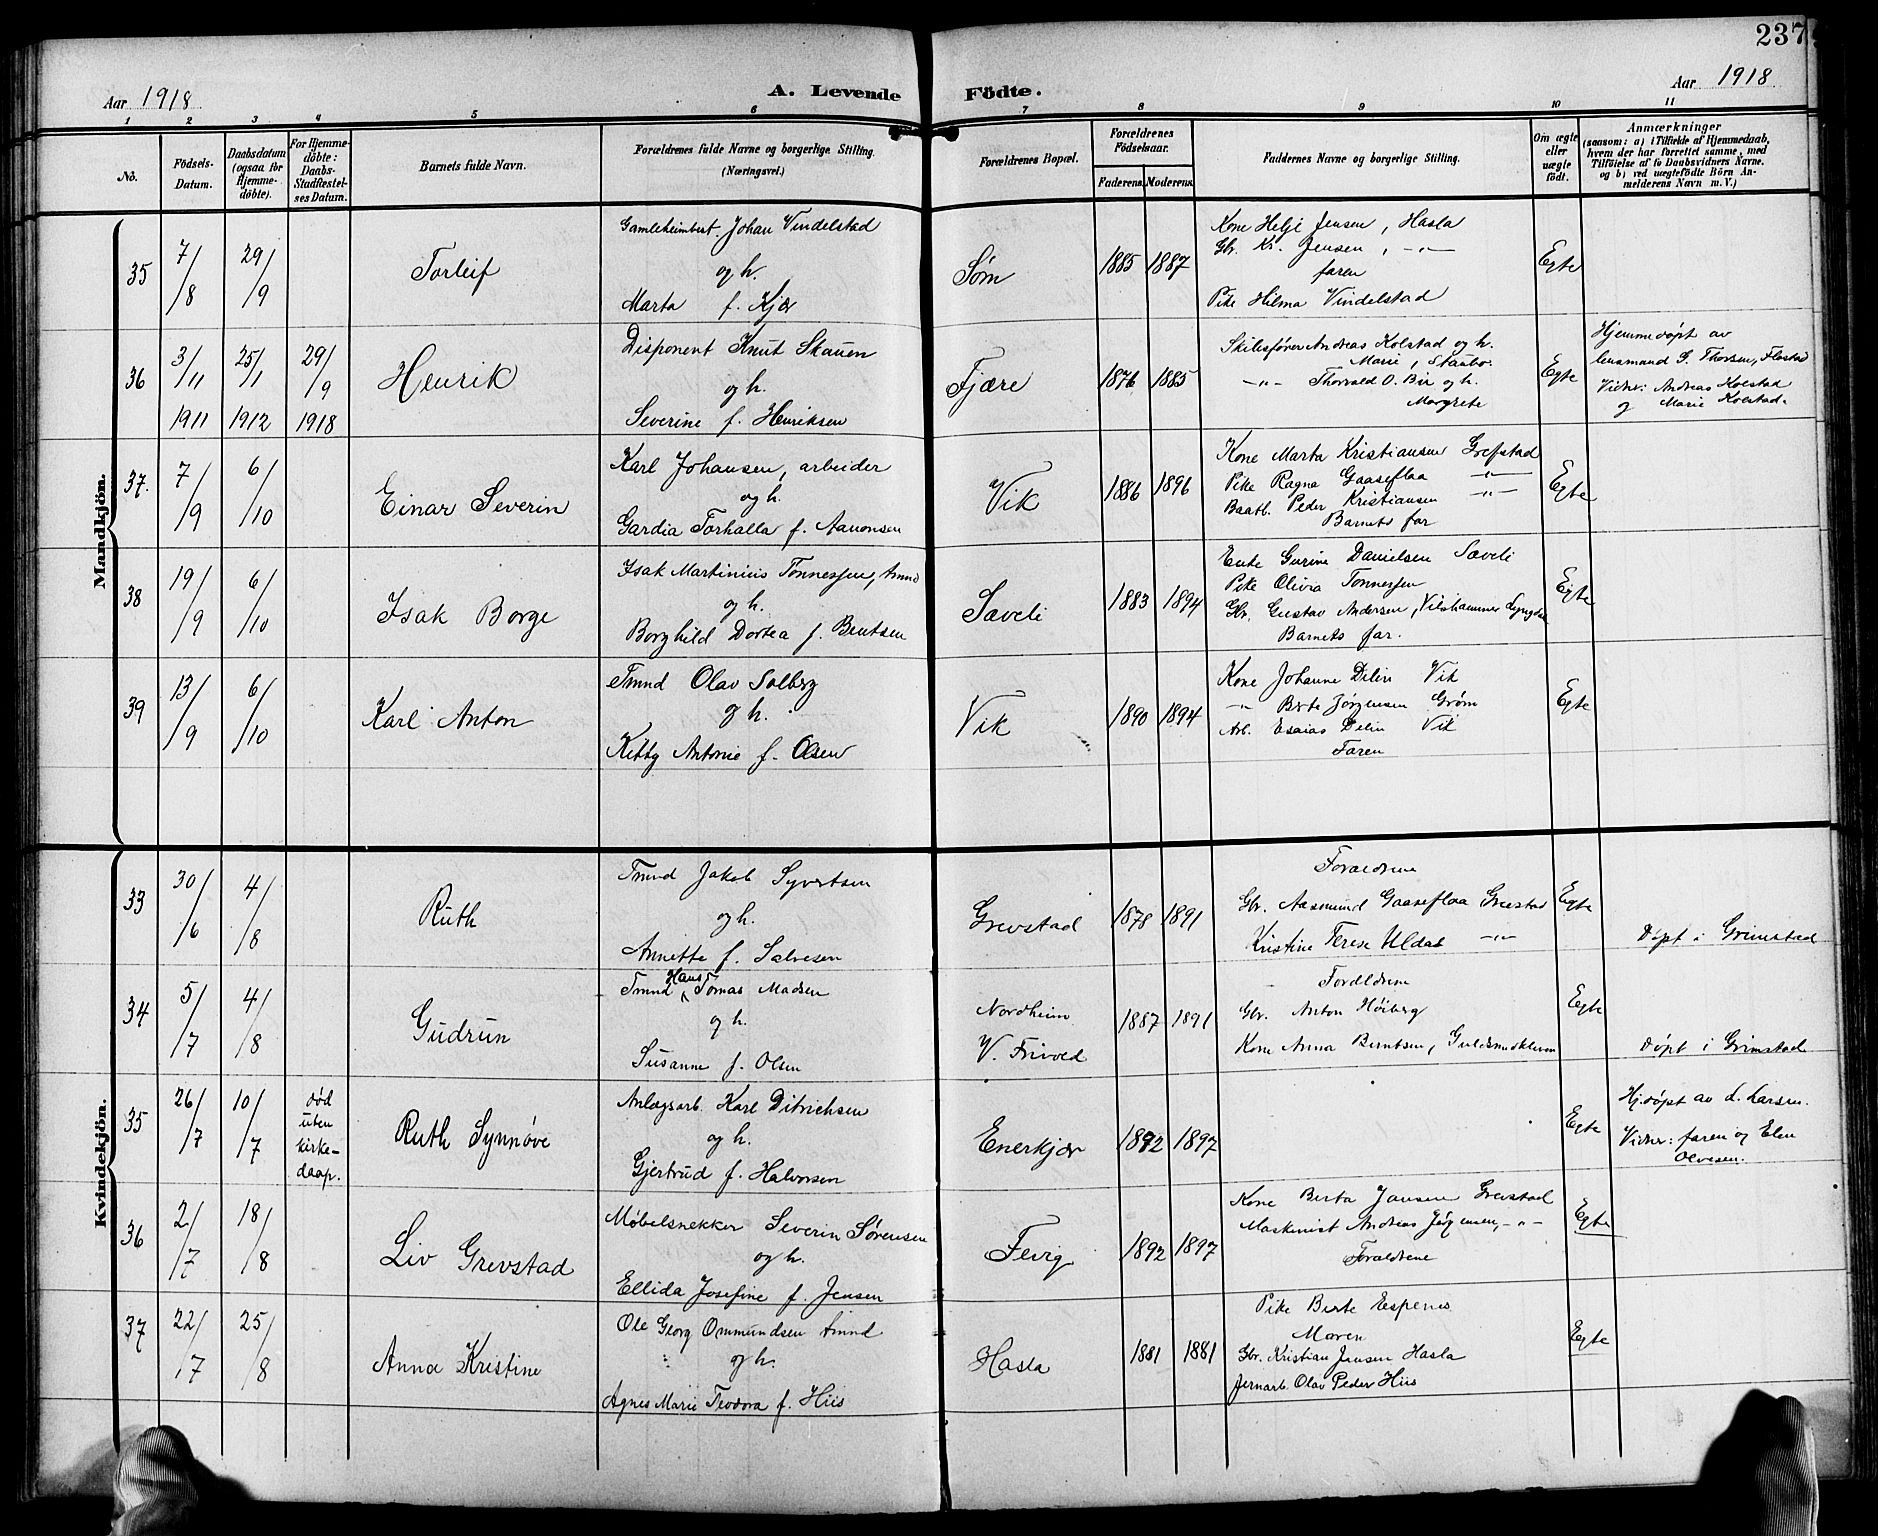 237
Aar 1918
A. Levende Födte.
Aar 1918
1 2 3 4 5 6 7 8 9 10 11
No.
Födsels-
Datum.
Daabsdatum
(ogsaa for
Hjemme-
döbte).
For Hjemme-
döbte:
Daabs-
Stadfæstel-
ses Datum.
Barnets fulde Navn.
Forældrenes fulde Navne og borgerlige Stilling.
(Næringsvei.)
Forældrenes Bopæl.
Forældrenes
Födselsaar.
Faderens. Moderens.
Faddernes Navne og borgerlige Stilling.
Om ægte
eller
uægte
födt.
Anmærkninger
(saasom: a) i Tilfælde af Hjemmedaab,
hvem der har forrettet samme, med
Tilföielse af to Daabsvidners Navne.
og b) ved uægtefödte Börn An-
melderens Navn m. V.)
Mandkjön.
35
7/8
29/9
Torleif
Johan Vindelstad
og h.
Marta f. Kjær
Søm
1885 1887
Kone Helje Jensen, Hasla
Gbr. Kr. Jensen, -"-
faren
Pike Hilma Vindelstad
Egte
36
3/11
1911
25/1
1912
29/9
1918
Henrik
Disponent Knut Skauen
og h.
Severine f. Henriksen
Fjære
1876 1885
Skibsfører Andreas Kolstad og h.
Marie, Staubo.
-"- Thorvald O. Bie og h.
Margrete
Egte
Hjemmedøpt av
lensmand S. Thorsen, Flostad
Vidner: Andreas Kolstad
og Marie Kolstad.
37.
7/9
6/10
Einar Severin
Karl Johansen, arbeider
og h.
Gardia Torhalla f. Aanonsen
Vik
1886 1896
Kone Marta Kristiansen Grefstad
Pike Ragna Gaaseflaa -"-
Baatb. Peder Kristiansen -"-
Barnets far
Egte
38
19/9
6/10
Isak Borge
Isak Martinius Tønnessen, tmnd
og h.
Borghild Dortea f. Bentsen
Saveli
1883 1894
Enke Gurine Danielsen Saveli
Pike Olivia Tønnessen
Gbr. Gustav Andersen,
Barnets far.
Egte
39
13/9
6/10
Karl Anton
Tmnd Olav Solberg
og h.
Kitty Antonie f. Olsen
Vik
1890 1894
Kone Johanne Delin Vik
-"- Berte Jørgensen Grøm
Arb. Esaias Delin Vik
Faren
Egte
Kvindekjön.
33
30/6
4/8
Ruth
Tmnd Jakob Syvertsen
og h.
Annette f. Salvesen
Grevstad
1878 1891
Forældrene
Gbr. Aasmund Gaaseflaa Grevstad
Kristine Terese Uldal -"-
Egte
Døpt i Grimstad
34
5/7
4/8
Gudrun
Tmnd Hans Tomas Madsen
og h.
Susanne f. Olsen
Nordheim
V. Frivold
1887 1891
Forældrene
Gbr. Anton Høiberg
Kone Anna Berntsen,
Egte
Døpt i Grimstad
35
26/7
10/7
død
uten
kirke-
daap.
Ruth Synnøve
Anlægsarb. Karl Ditrichsen
og h.
Gjertrud f. Halvorsen
Enerkjær
1892 1897
Egte
Hj.døpt av d. Larsen.
Vidner: faren og Elen
Olvesen.
36
2/7
18/8
Liv Grevstad
Møbelsnekker Severin Sørensen
og h.
Ellida Josefine f. Jensen
Fevig
1892 1897
Kone Berta Jansen Grevstad
Maskinist Andreas Jørgensen, -"-
Forældrene
Egte
37
22/7
25/8
Anna Kristine
Ole Georg Ommundsen tmnd
og h.
Agnes Marie Teodora f. Hiis
Hasla
1881 1881
Pike Berte Espenes
Maren
Gbr. Kristian Jensen Hasla
Jernarb. Olav Peder Hiis
Egte